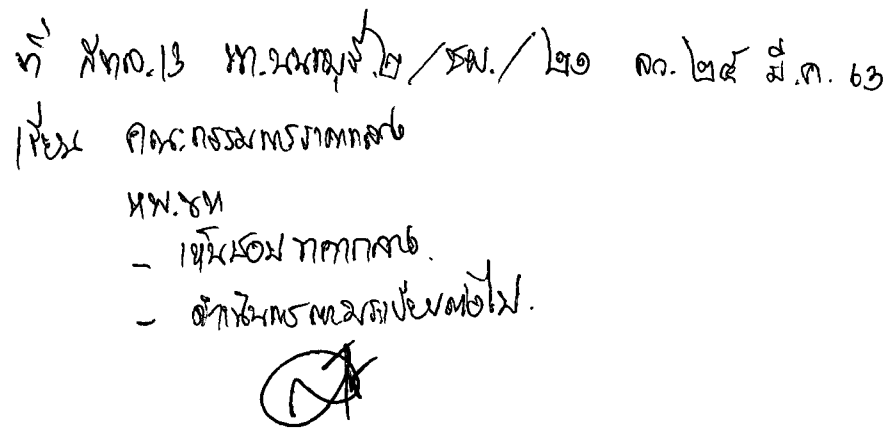 ที่ สทล.13 ขท.นนทบุรี.๒/รผ./๒๑ ลว. ๒๕ มี.ค. 63
เรียน คณะกรรมการราคากลาง
- เห็นชอบ ราคากลาง.
- ดำเนินการตามระเบียบต่อไป.